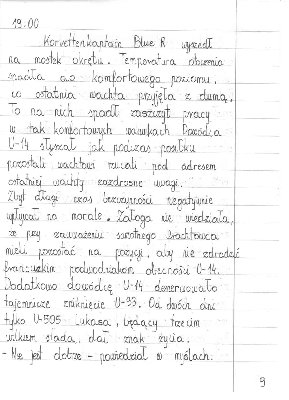 19.00
Korvettenkapitain Blue R wyszedł
na mostek okrętu. Temperatura obecnie
wróciła do komfortowego poziomu,
co ostatnia wachta przyjęła z dumą.
To na nich spadł zaszczyt pracy
w tak komfortowych warunkach Dowódca
U-14 słyszał jak podczas posiłku
pozostali wachtowi rzucali pod adresem
ostatniej wachty zazdrosne uwagi.
Zbyt długi czas bezczynności negatywnie
wpływał na morale. Załoga nie wiedziała,
że przy zauważeniu samotnego frachtowca
mieli pozostać na pozycji, aby nie zdradzić
francuskim podwodniakom obecności U-14.
Dodatkowo dowódcę U-14 denerwowało
tajemnicze zniknięcie U-33. Od dwóch dni
tylko U-505 Lukasa, będący trzecim
wilkiem stada, dał znak życia.
- Nie jest dobrze - powiedział w myślach.
9